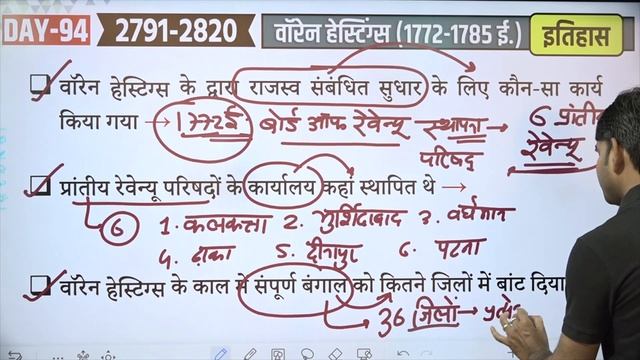 DAY-94 2791-2820 वॉरेन हेस्टिंग्स (1772-1785 ई.) इतिहास
वॉरेन हेस्टिंग्स के द्वारा राजस्व संबंधित सुधार के लिए कौन-सा कार्य
किया गया → 1772ई बोर्ड ऑफ रेवेन्यू स्थापना → 6 प्रांतीय
परिषद रेवेन्यू
प्रांतीय रेवेन्यू परिषदों के कार्यालय कहां स्थापित थे →
6 1. कलकत्ता 2. मुर्शिदाबाद 3. वर्धमान
4. ढाका 5. दीनापुर 6. पटना
वॉरेन हेस्टिंग्स के काल में संपूर्ण बंगाल को कितने जिलों में बांट दिया
36 जिलों →